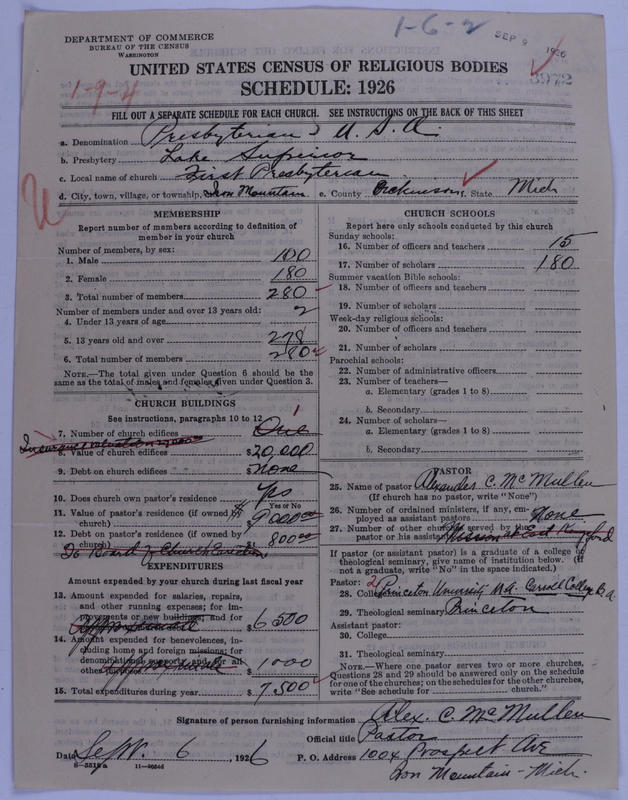 DEPARTMENT OF COMMERCE
BUREAU OF THE CENSUS
WASHINGTON
1-6-2
SEP 9 1926
UNITED STATES CENSUS OF RELIGIOUS BODIES
3972
1-9-4
SCHEDULE: 1926
FILL OUT A SEPARATE SCHEDULE FOR EACH CHURCH. SEE INSTRUCTIONS ON THE BACK OF THIS SHEET
a. Denomination Presbyterian U. S. A.
b. Presbytery Lake Superior
c. Local name of church First Presbyterian
d. City, town, village, or township Iron Mountain e. County Dickinson f. State Mich
MEMBERSHIP
Report number of members according to definition of
member in your church
Number of members, by sex:
1. Male 100
2. Female 180
3. Total number of members 280
Number of members under and over 13 years old:
4. Under 13 years of age 2
5. 13 years old and over 278
6. Total number of members 280
NOTE.—The total given under Question 6 should be
same as the total of males and females given under Question 3.
CHURCH BUILDINGS
See instructions, paragraphs 10 to 12
7. Number of church edifices One
Insurance valuation
8. Value of church edifices $20,000
9. Debt on church edifices $none
10. Does church own pastor's residence Yes
Yes or No
11. Value of pastor's residence (if owned by
church) $9000.00
12. Debt on pastor's residence (if owned by
church) $800.00
To Board of Church Erection
EXPENDITURES
Amount expended by your church during last fiscal year
13. Amount expended for salaries, repairs,
and other running expenses; for im-
provements or new buildings; and for
$6500
14. Amount expended for benevolences, in-
cluding home and foreign missions; for
denominational support; and for all
other purposes $1000
15. Total expenditures during year $7,500
CHURCH SCHOOLS
Report here only schools conducted by this church
Sunday schools:
16. Number of officers and teachers 15
17. Number of scholars 180
Summer vacation Bible schools:
18. Number of officers and teachers
19. Number of scholars
Week-day religious schools:
20. Number of officers and teachers
21. Number of scholars
Parochial schools:
22. Number of administrative officers
23. Number of teachers—
a. Elementary (grades 1 to 8)
b. Secondary
24. Number of scholars—
a. Elementary (grades 1 to 8)
b. Secondary
PASTOR
25. Name of pastor Alexander C. McMullen
(If church has no pastor, write "None")
26. Number of ordained ministers, if any, em-
ployed as assistant pastors None
27. Number of other churches served by the
pastor or his assistant Mission at East Kingsford
If pastor (or assistant pastor) is a graduate of a college or
theological seminary, give name of institution below. (If
not a graduate, write "No" in the space indicated.)
Pastor: 2
28. College Princeton University M.A. Carroll College B.A.
29. Theological seminary Princeton
Assistant pastor:
30. College
31. Theological seminary
NOTE.—Where one pastor serves two or more churches,
Questions 28 and 29 should be answered only on the schedule
for one of the churches; on the schedules for the other churches,
write "See schedule for church."
Signature of person furnishing information Alex. C. McMullen
Official title Pastor
Date Sept. 6, 1926 P. O. Address 1004 Prospect Ave
8-5518a 11-20546
Iron Mountain - Mich.